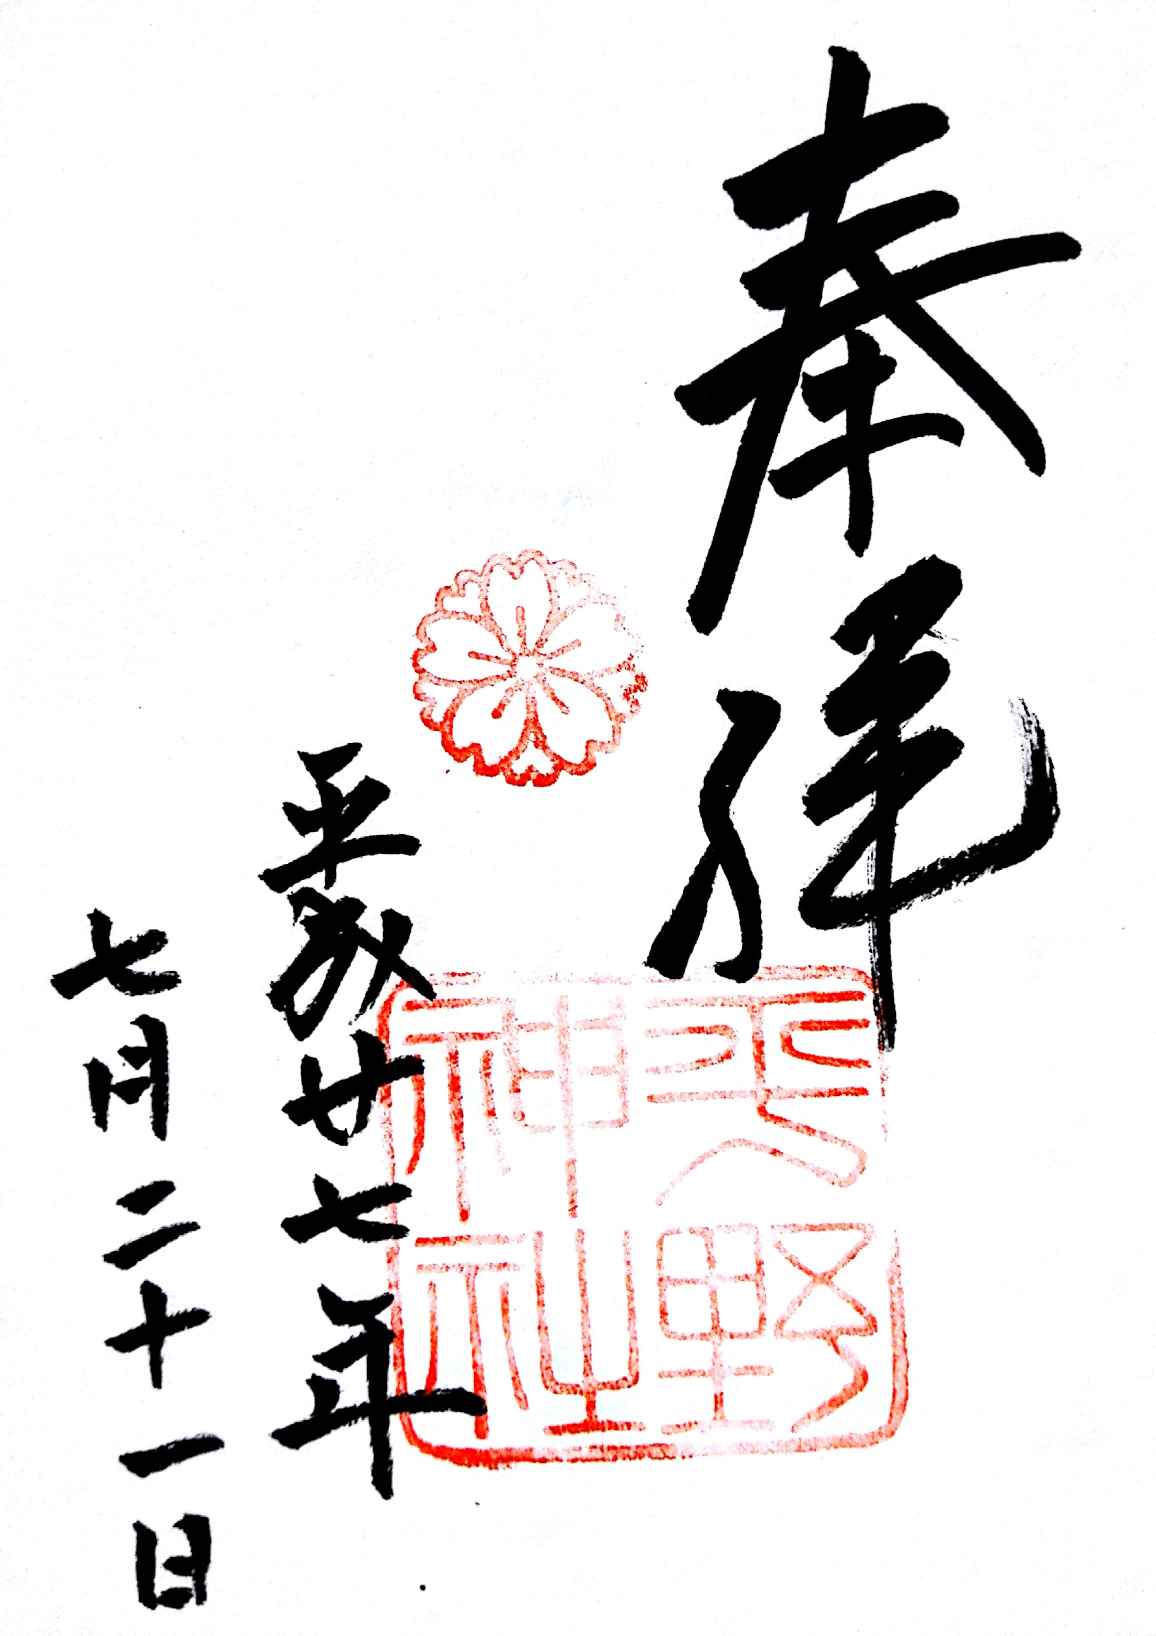 奉拝
平野神社
平成廿七年
七月二十一日